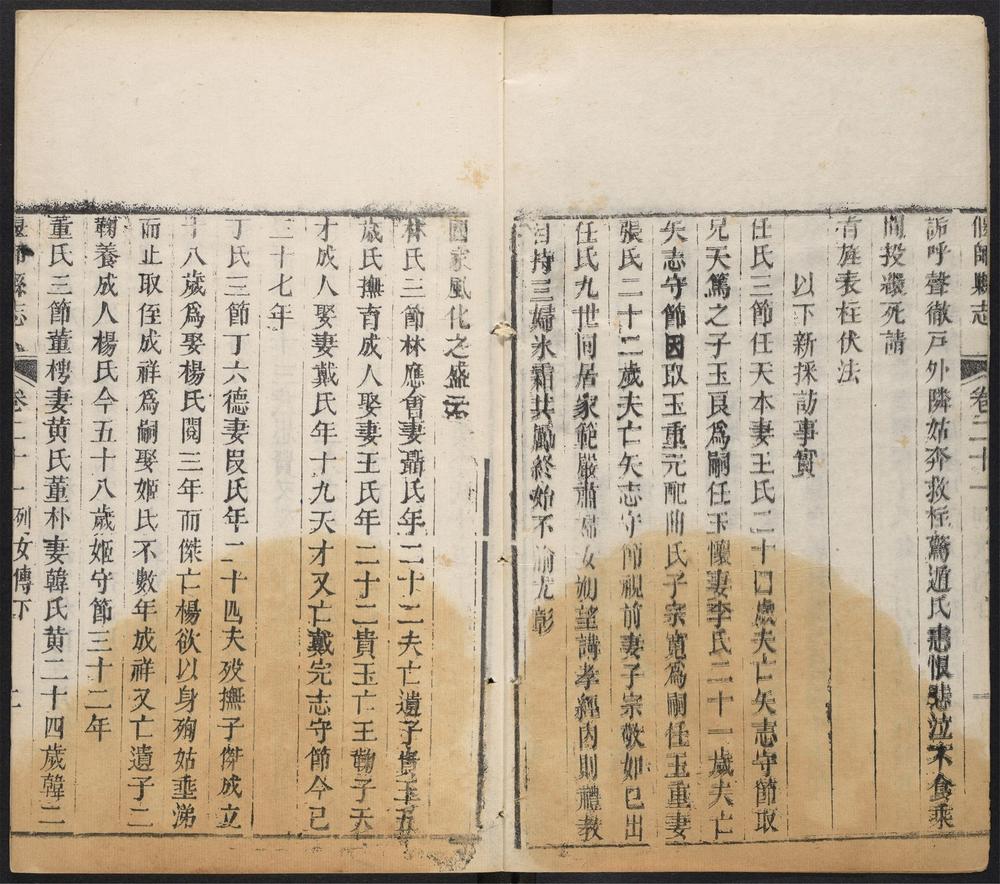 偃師縣志 卷二十一
詬呼聲徹戸外隣姑奔救桎驚遁氏恚恨悲泣不食乘
間投繯死請
旨旌表桎伏法
以下新採訪事實
任氏三節任天本妻王氏二十四歲夫亡矢志守節取
兄天篤之子玉良爲嗣任玉懷妻李氏二十一歲夫亡
矢志守節因取玉重元配曲氏子宗寬爲嗣任玉重妻
張氏二十二歲夫亡矢志守節視前妻子宗敬如已出
任氏九世同居家範嚴肅婦女朔望講孝經内則禮教
自持三婦氷霜共勵終始不渝尤彰
國家風化之盛云
林氏三節林應會妻聶氏年二十二夫亡遺子貴玉五
歲氏撫育成人娶妻王氏年二十二貴玉亡王鞠子天
才成人娶妻戴氏年十九天才又亡戴完志守節今已
三十七年
丁氏三節丁六德妻段氏年二十四夫歿撫子傑成立
十八歲爲娶楊氏閱三年而傑亡楊欲以身殉姑垂涕
而止取侄成祥爲嗣娶姬氏不數年成祥又亡遺子二
鞠養成人楊氏今五十八歲姬守節三十二年
董氏三節董樗妻黄氏董朴妻韓氏黄二十四歲韓二
偃師縣志 卷二十一 列女傳下 二